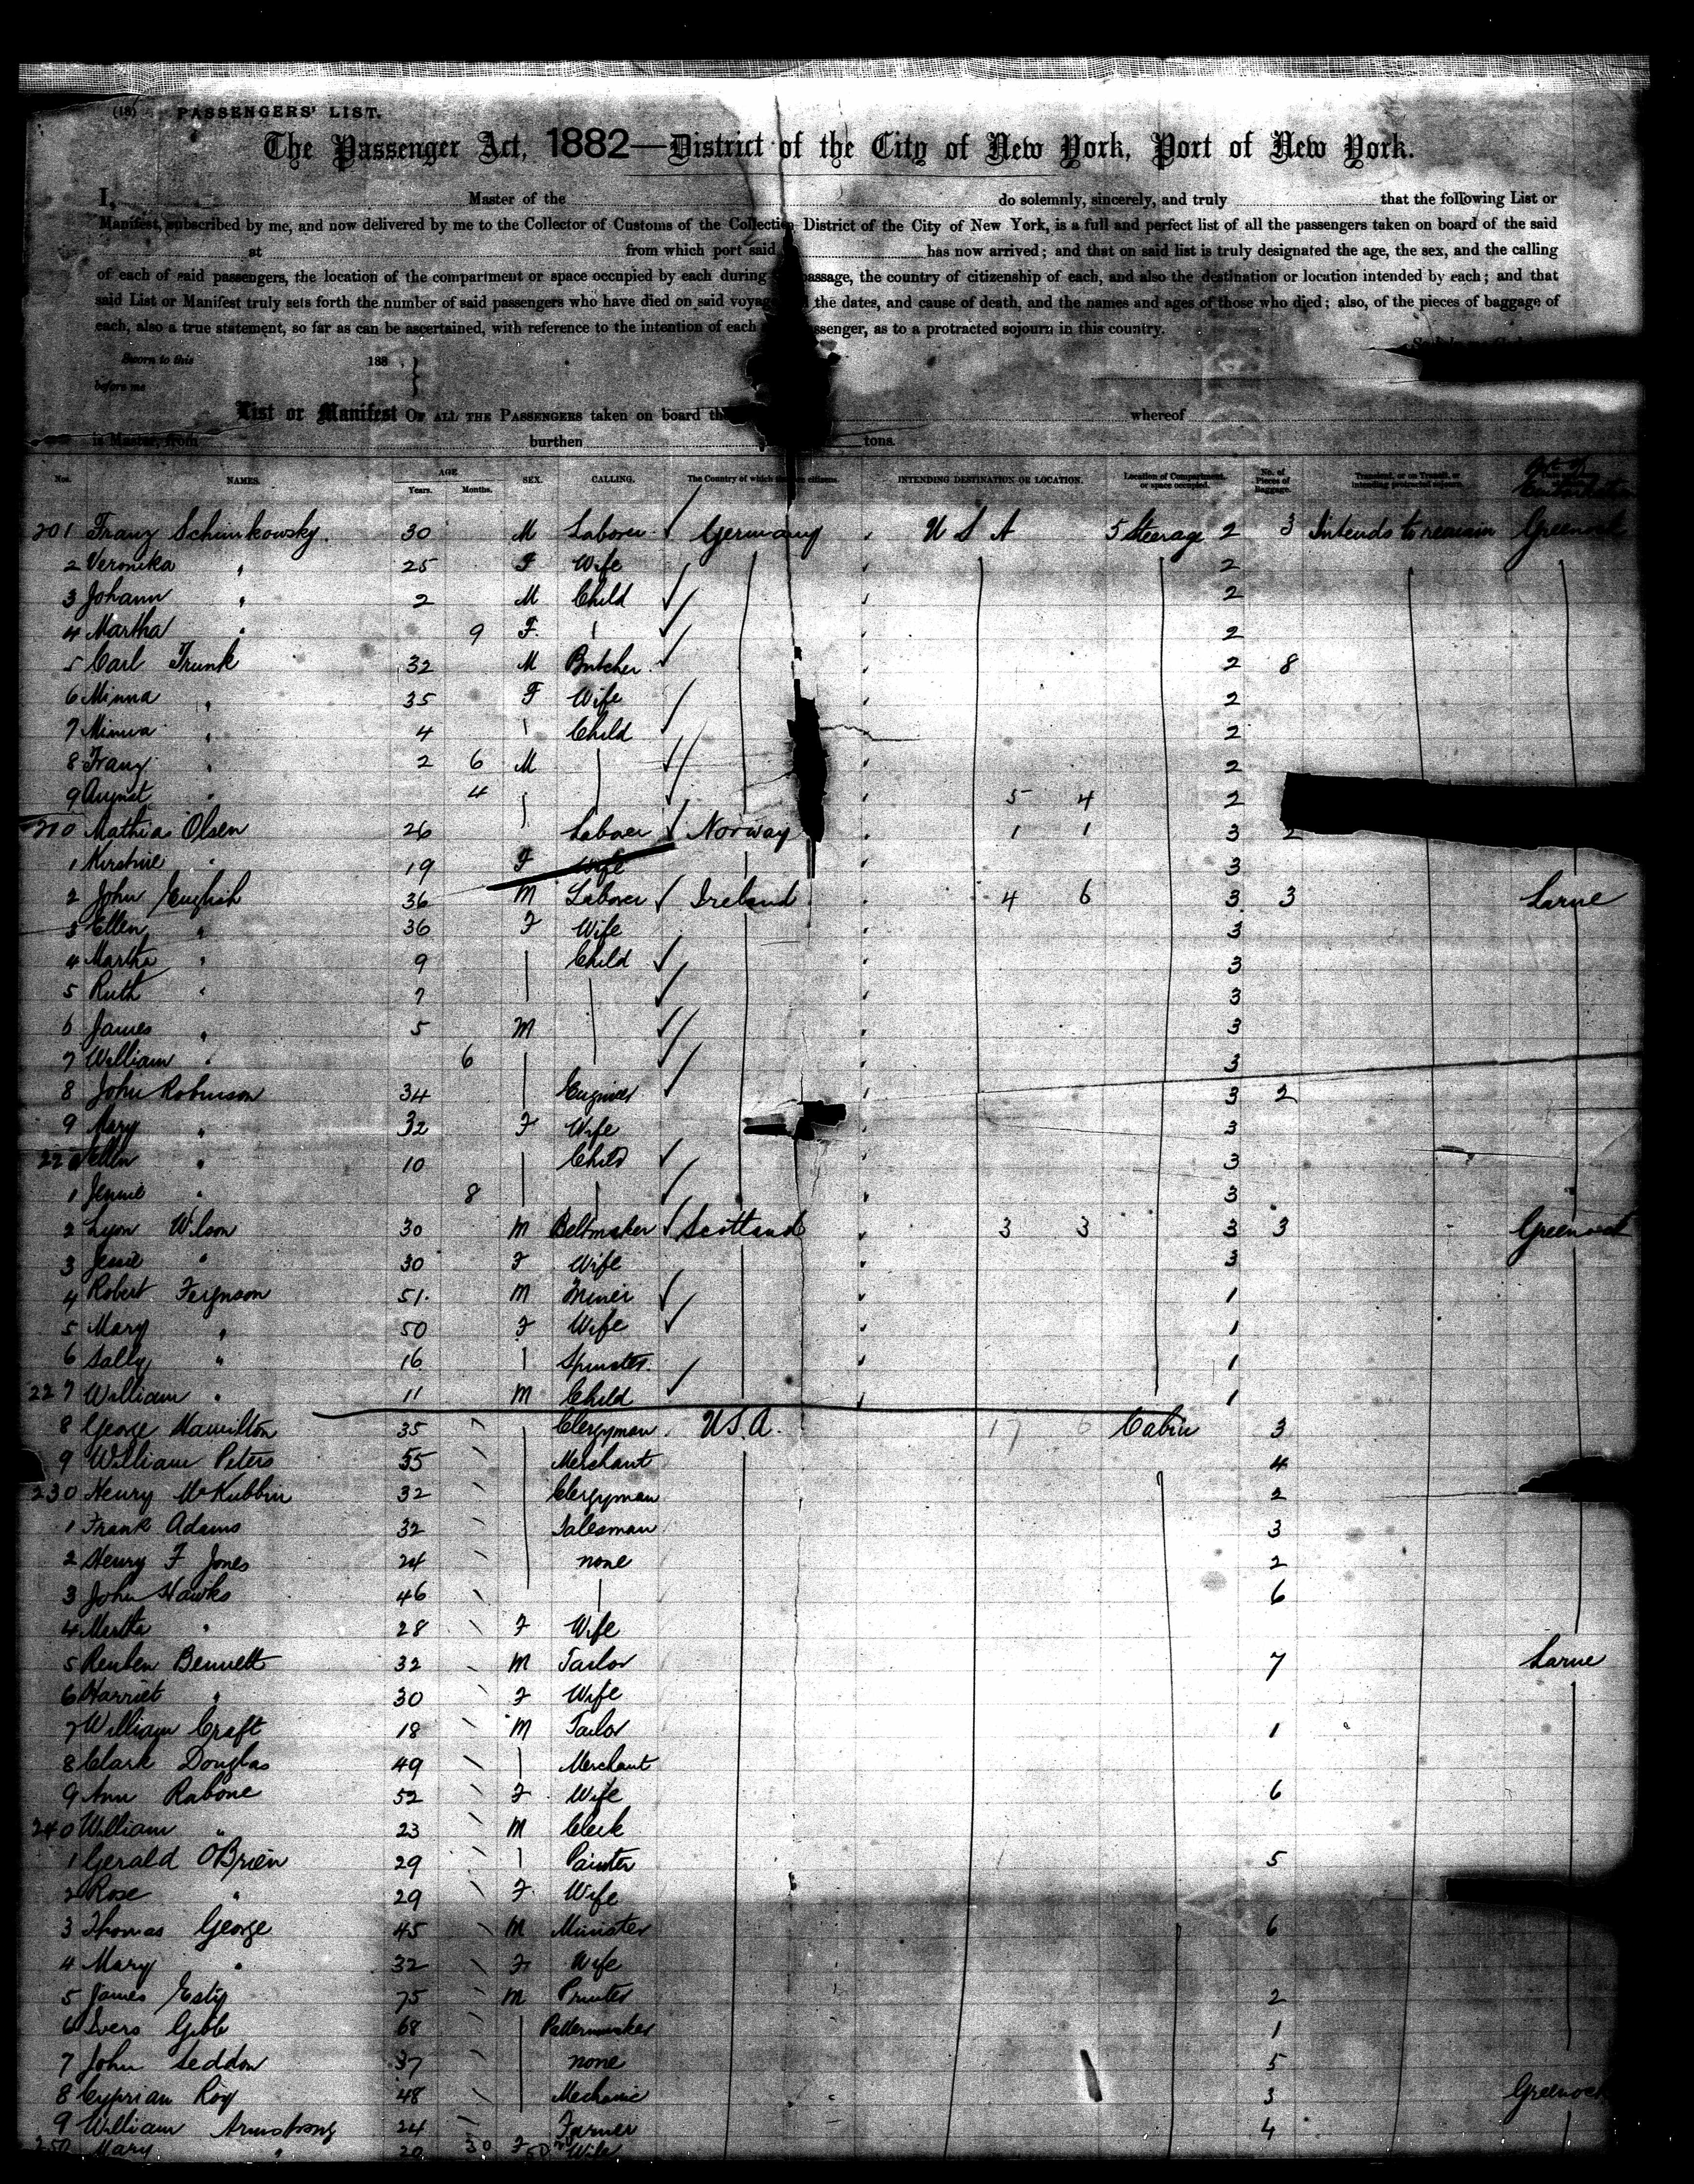 (18) PASSENGERS' LIST.
The Passenger Act, 1882—District of the City of New York, Port of New York.
I, Master of the do solemnly, sincerely, and truly that the following List or
Manifest, subscribed by me, and now delivered by me to the Collector of Customs of the Collection District of the City of New York, is a full and perfect list of all the passengers taken on board of the said
at from which port said has now arrived; and that on said list is truly designated the age, the sex, and the calling
of each of said passengers, the location of the compartment or space occupied by each during passage, the country of citizenship of each, and also the destination or location intended by each; and that
said List or Manifest truly sets forth the number of said passengers who have died on said voyage the dates, and cause of death, and the names and ages of those who died; also, of the pieces of baggage of
each, also a true statement, so far as can be ascertained, with reference to the intention of each ssenger, as to a protracted sojourn in this country.
Sworn to this 188
before me
List or Manifest OF ALL THE PASSENGERS taken on board the whereof
is Master, from burthen tons.
Nos. NAMES. AGE Years. Months. SEX. CALLING. The Country of which citizens. INTENDING DESTINATION OR LOCATION. Location of Compartment, or space occupied. No. of Pieces of Baggage. Transient, or on Transit, or intending protracted sojourn.
201 Franz Schimkowsky 30 M Laborer Germany U S A 5 Steerage 2 3 Intends to remain Greenock
2 Veronika " 25 F Wife 2
3 Johann " 2 M Child 2
4 Martha " 9 F 2
5 Carl Trunk 32 M Butcher 2 8
6 Minna " 35 F Wife 2
7 Minna " 4 Child 2
8 Franz " 2 6 M 2
9 August " 4 5 4 2
210 Mathia Olsen 26 Laborer Norway 1 1 3 2
1 Kirstine " 19 F Wife 3
2 John English 36 M Laborer Ireland 4 6 3 3 Larne
3 Ellen " 36 F Wife 3
4 Martha " 9 Child 3
5 Ruth " 7 3
6 James " 5 M 3
7 William " 6 3
8 John Robinson 34 Engineer 3 2
9 Mary " 32 F Wife 3
220 Ellen " 10 Child 3
1 Jennie " 8 3
2 Lyon Wilson 30 M Beltmaker Scotland 3 3 3 3 Greenock
3 Jessie " 30 F Wife 3
4 Robert Ferguson 51 M Miner 1
5 Mary " 50 F Wife 1
6 Sally " 16 Spinster 1
227 William " 11 M Child 1
8 George Hamilton 35 Clergyman U.S.A. 17 6 Cabin 3
9 William Peters 55 Merchant 4
230 Henry McKubbin 32 Clergyman 2
1 Frank Adams 32 Salesman 3
2 Henry F Jones 24 none 2
3 John Hawks 46 6
4 Martha " 28 F Wife
5 Reuben Bennett 32 M Tailor 7 Larne
6 Harriet " 30 F Wife
7 William Craft 18 M Tailor 1
8 Clark Douglas 49 Merchant
9 Ann Rabone 52 F Wife 6
240 William " 23 M Clerk
1 Gerald O'Brien 29 Painter 5
2 Rose " 29 F Wife
3 Thomas George 45 M Minister 6
4 Mary " 32 F Wife
5 James Estiy 75 M Printer 2
6 Ivers Gibb 68 Patternmaker 1
7 John Seddon 37 none 5
8 Cyprian Roy 48 Mechanic 3 Greenock
9 William Armstrong 24 Farmer 4
250 Mary " 20 30 F Wife